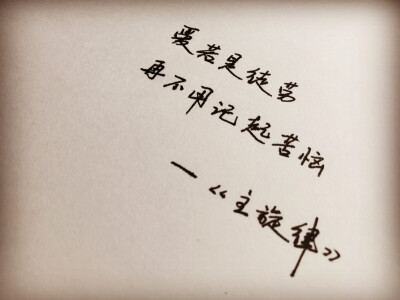 爱若是徒劳
再不用记起苦恼
—《主旋律》